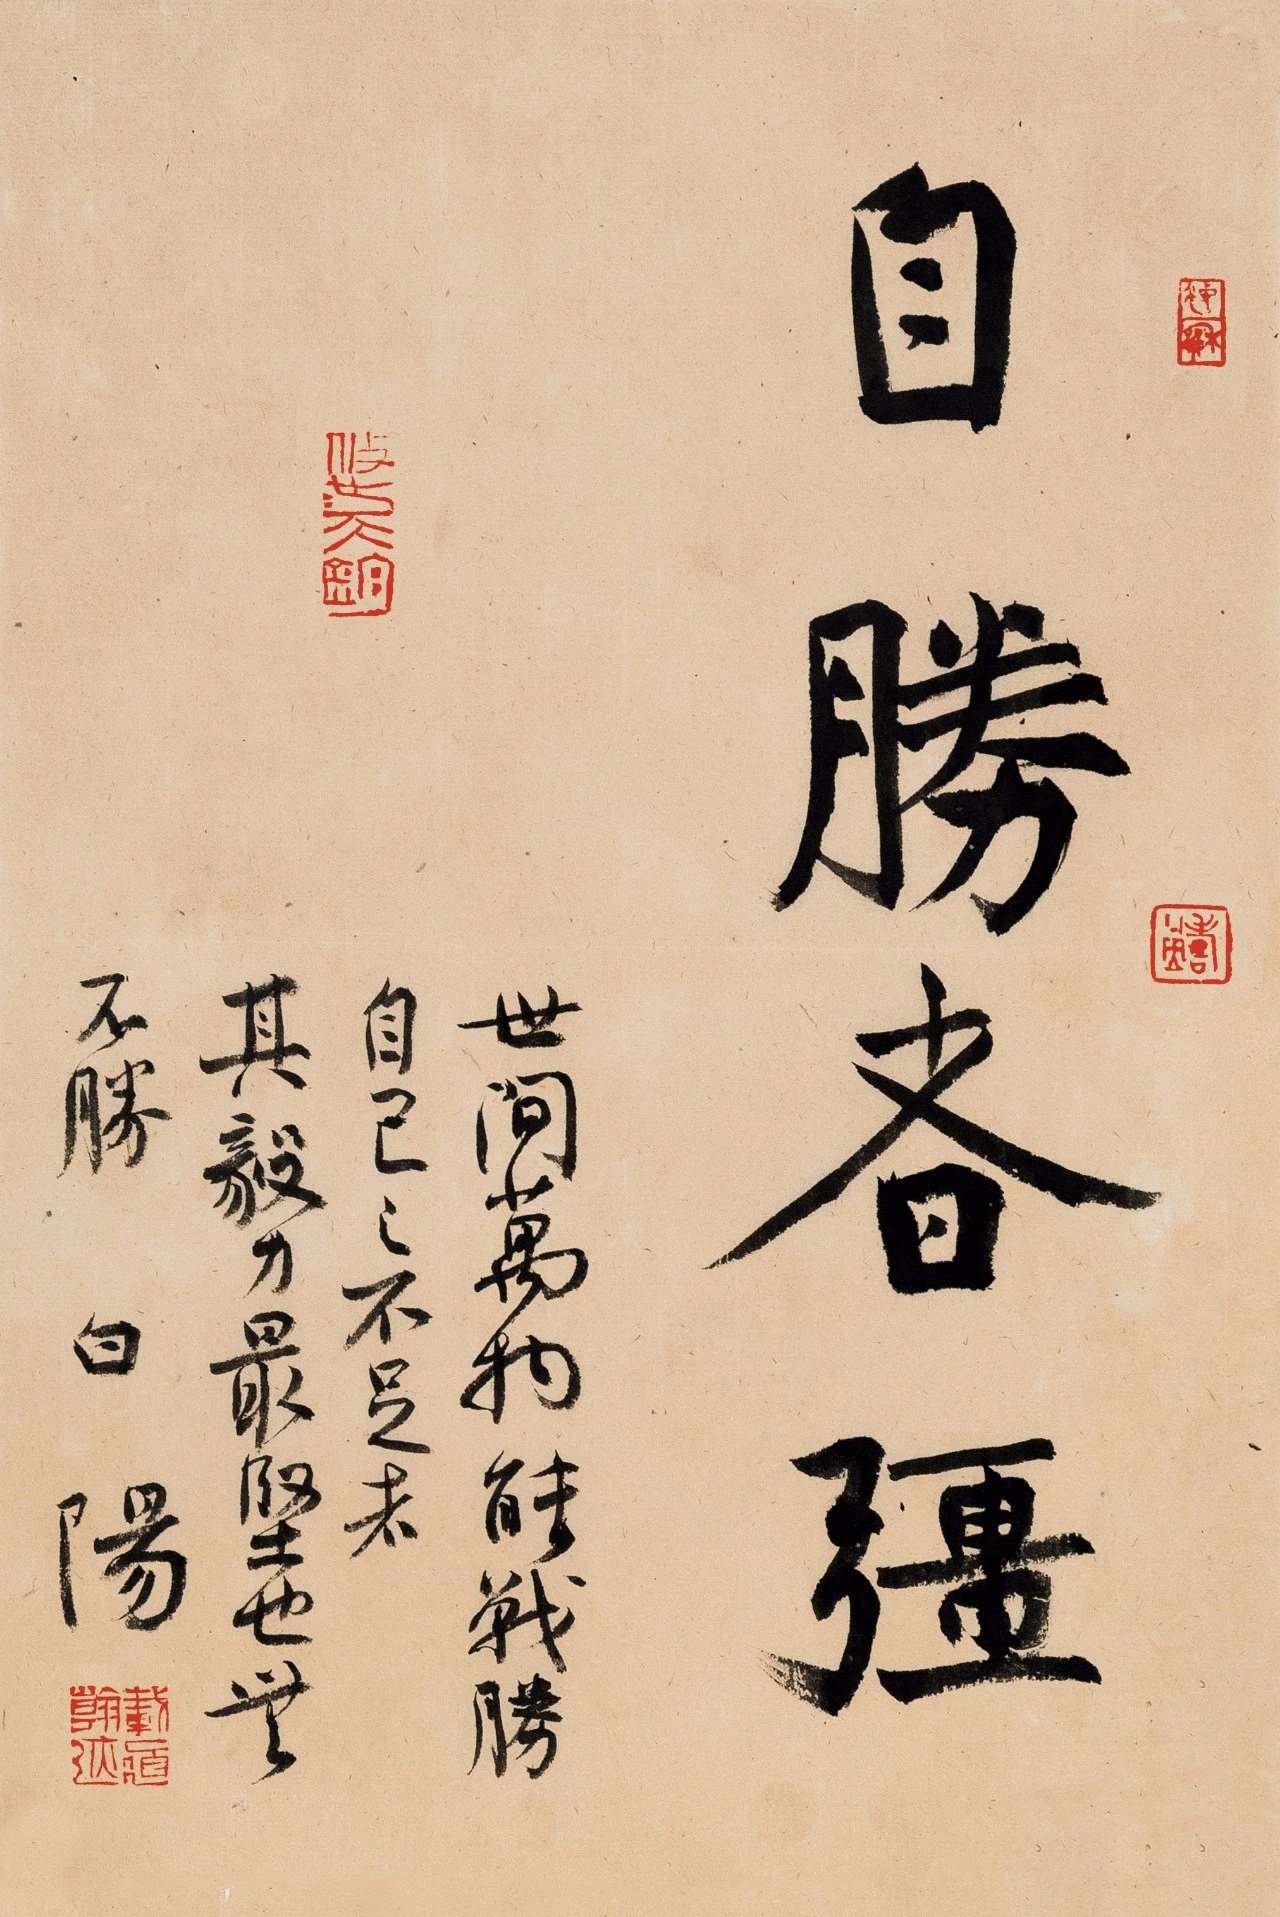 自勝者彊
世間萬物能戰勝
自己之不足者
其毅力最堅也無
不勝 白陽